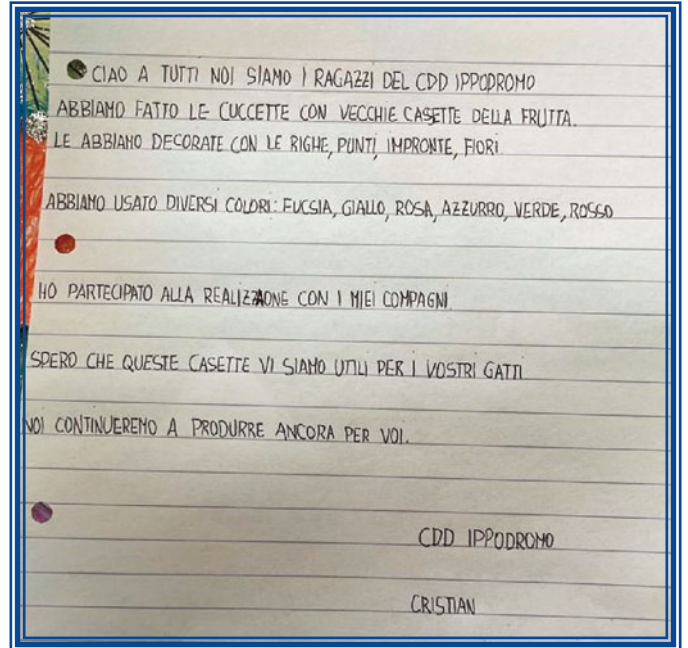 CIAO A TUTTI NOI SIAMO I RAGAZZI DEL CDD IPPODROMO
ABBIAMO FATTO LE CUCCETTE CON VECCHIE CASETTE DELLA FRUTTA.
LE ABBIAMO DECORATE CON LE RIGHE, PUNTI, IMPRONTE, FIORI
ABBIAMO USATO DIVERSI COLORI: FUCSIA, GIALLO, ROSA, AZZURRO, VERDE, ROSSO
HO PARTECIPATO ALLA REALIZZAONE CON I MIEI COMPAGNI
SPERO CHE QUESTE CASETTE VI SIAMO UTILI PER I VOSTRI GATTI
NOI CONTINUEREMO A PRODURRE ANCORA PER VOI.
CDD IPPODROMO
CRISTIAN